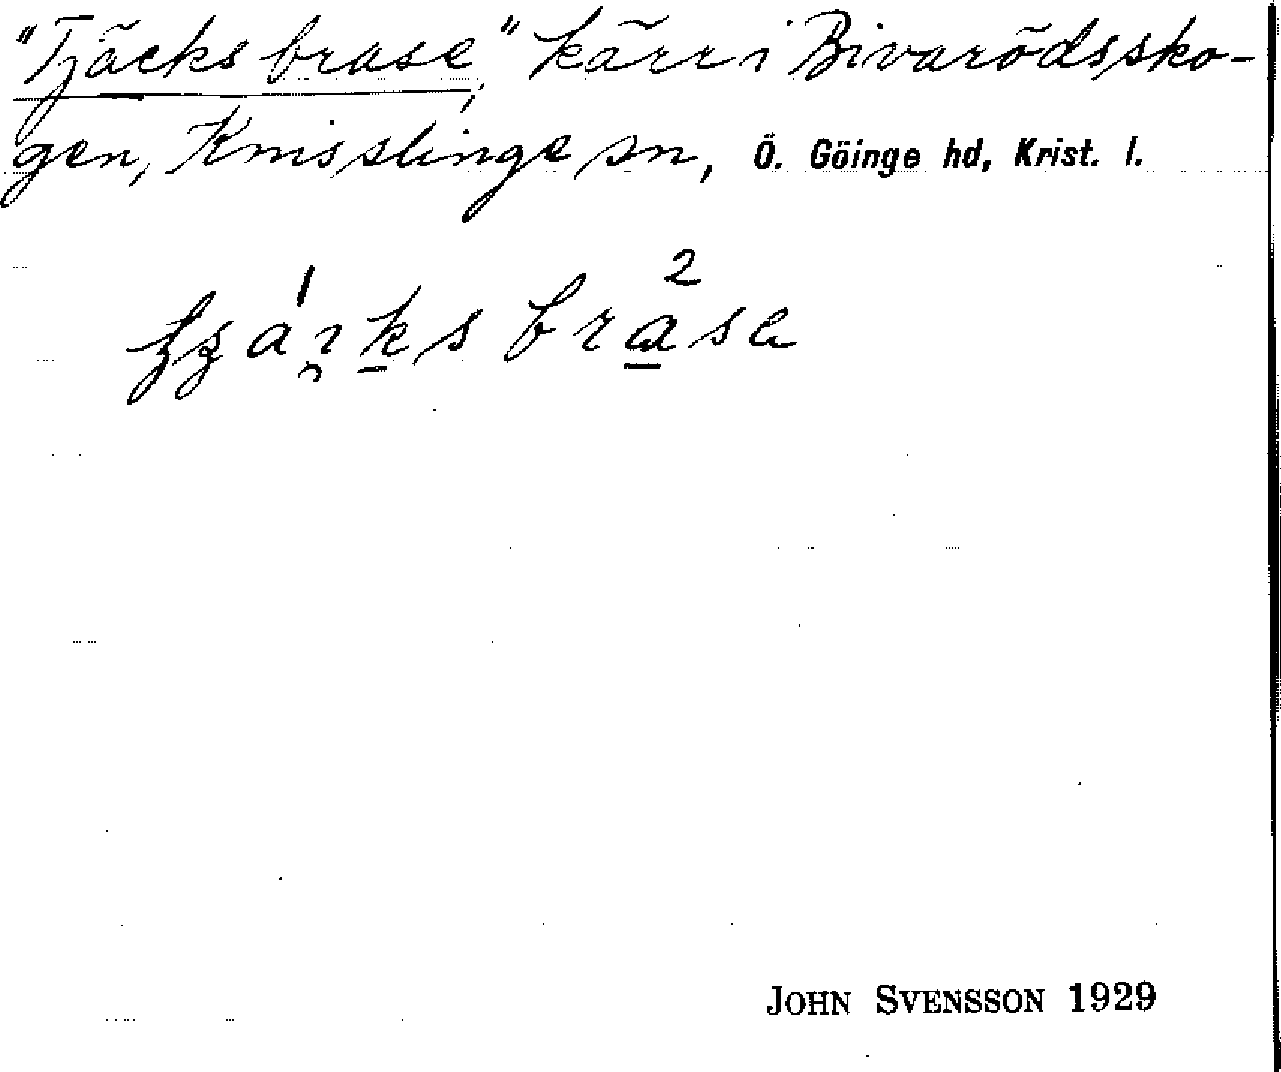 "Tjäcks brase," kärr i Bivarödssko-
gen, Knisslinge sn, Ö. Göinge hd, Krist. l.
JOHN SVENSSON 1929